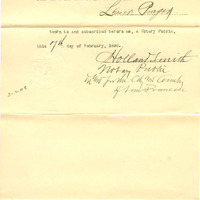 Sworn to and subscribed before me, a Notary Public,
this 17th day of February,
Holland Smith
Notary Public
In & for the City & County
of San Francisco